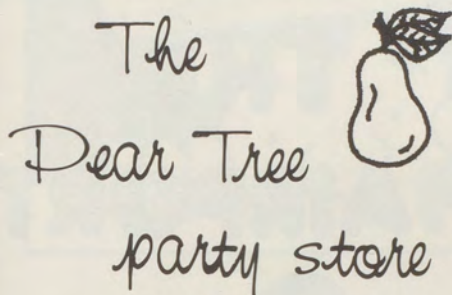 The
Pear Tree
party store